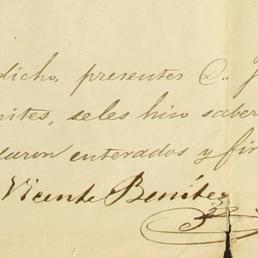 dicho, presentes D.
nites, seles hiso saber
daron enterados y fir
Vicente Benites